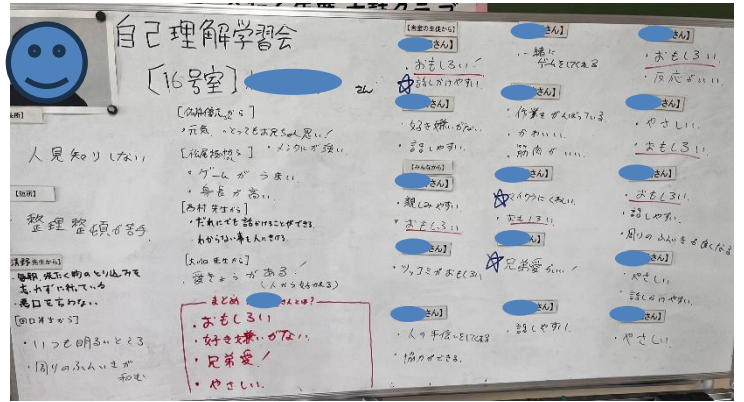 自己理解学習会
[16号室]
さん
【長所】
人見知りしない
【短所】
整理整頓が苦手
先生から】
毎朝
忘れずに行っている
・悪口を言わない
[田口先生から]
・いつも明るいところ
・周りのふんいきが
和む
から]
・元気 ・とってもお兄ちゃん思い!
・メンタルが強い
・ゲームがうまい
・身長が高い
村先生から]
・だれにでも話かけることができる
わからない事を人にきける
先生から]
愛きょうがある!
(人から好かれる)
まとめ さんとは?
・おもしろい
・好き嫌いがない
・兄弟愛!
・やさしい
さん】
・おもしろい!
話しかけやすい
さん】
・好き嫌いがない
・話しやすい
【みんなから】
さん】
・親しみやすい
・おもしろい
さん】
・ツッコミがおもしろい
さん】
・人の手伝いをしてくれる
・協力ができる
さん】
・一緒に
ゲームをしてくれる
さん】
・作業をがんばっている
・かわいい
・筋肉がいい
さん】
マイクラにくわしい
・おもしろい
さん】
兄弟愛
さん】
・話しやすい
さん】
・おもしろい
・反応がいい
さん】
・やさしい
・おもしろい
さん】
・おもしろい
・話しやすい
・周りのふんいきも良くなる
さん】
・やさしい
・話しかけやすい
さん】
・やさしい